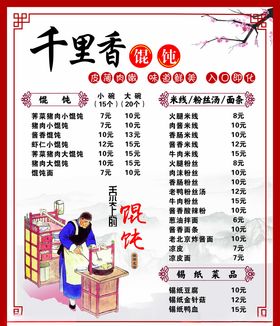 千里香 馄饨
皮薄肉嫩 味道鲜美 入口即化
馄饨 小碗(15个) 大碗(20个)
荠菜猪肉小馄饨 7元 10元
猪肉小馄饨 7元 10元
酱香馄饨 10元 13元
虾仁小馄饨 12元 15元
荠菜猪肉大馄饨 10元 15元
猪肉大馄饨 10元 15元
馄饨面 7元 10元
米线/粉丝汤/面条
火腿米线 8元
肉酱米线 9元
香肠米线 9元
鱼丸米线 9元
牛肉米线
火腿粉丝
肉沫粉丝
香肠粉丝
老鸭粉丝汤
牛肉粉丝
酱香酸辣粉
葱油拌面
酱香面
老北京炸酱面
凉皮
凉皮面
舌尖上的
馄饨
锡纸菜品
锡纸豆腐 10元
锡纸金针菇 12元
锡纸鸭血